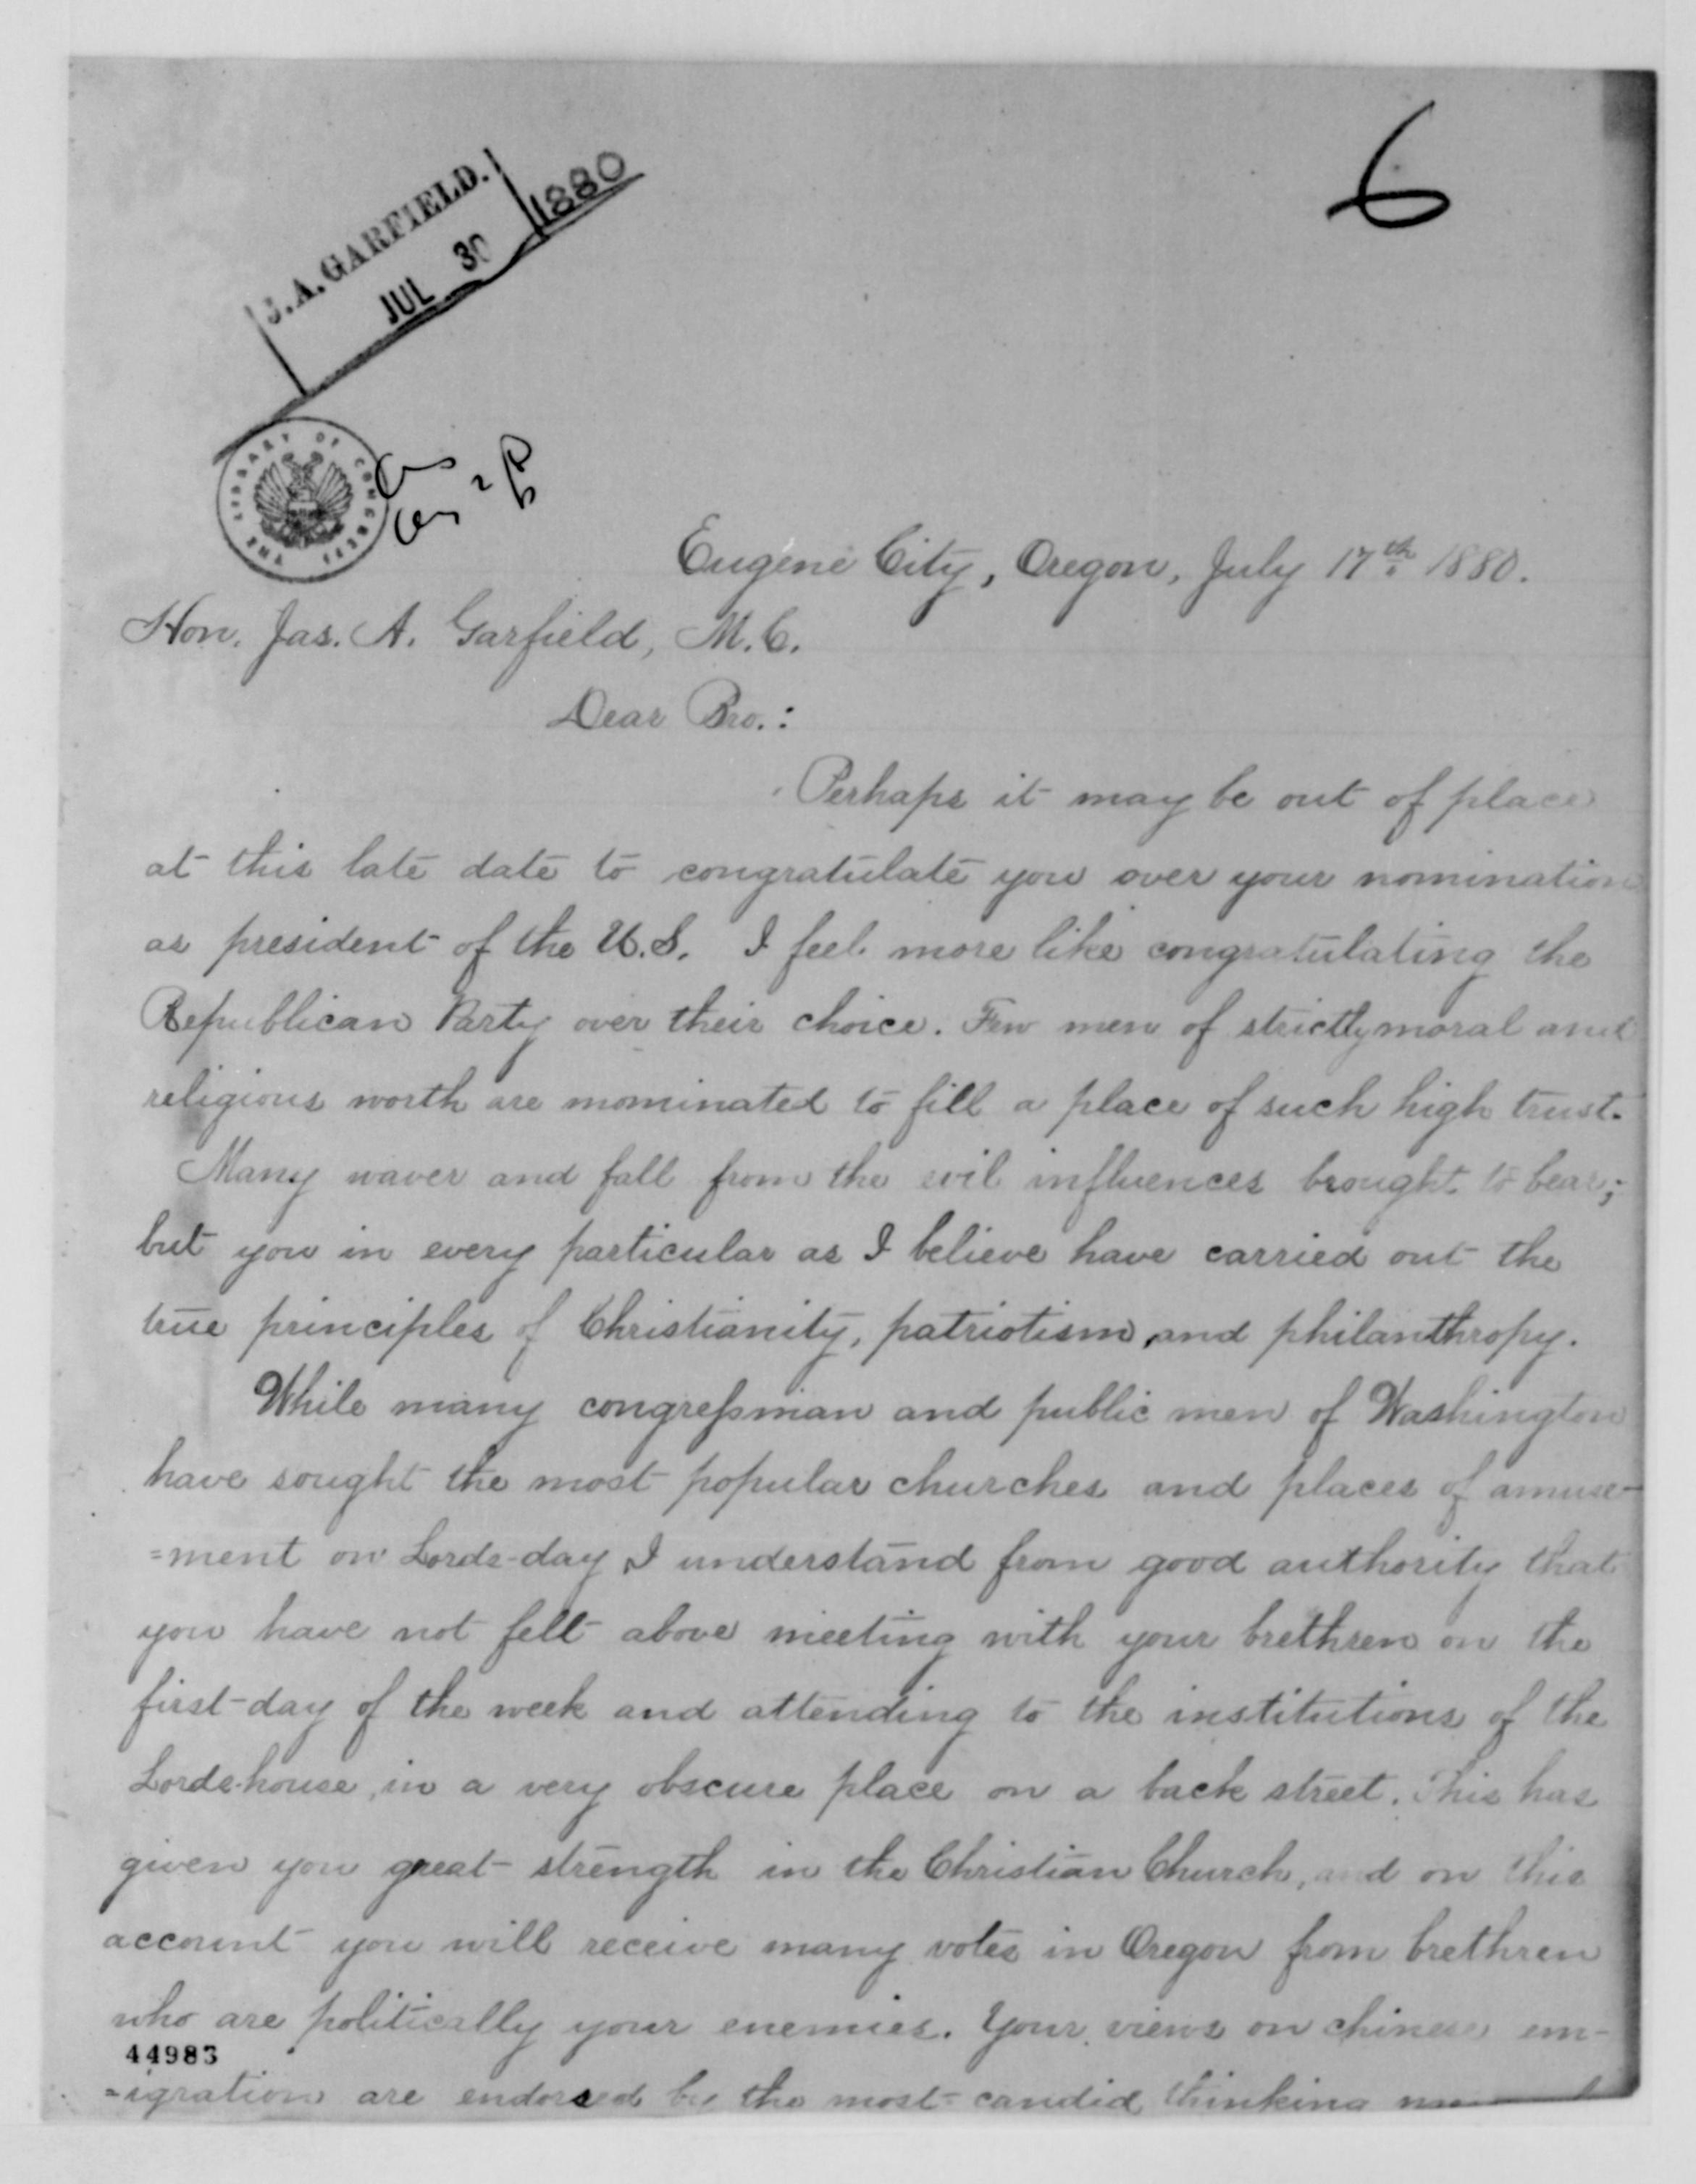 6
J. A. GARFIELD.
JUL 30 1880
THE LIBRARY OF CONGRESS
Eugene City, Oregon, July 17th 1880.
Hon. Jas. A. Garfield, M.C.
Dear Bro.:
Perhaps it may be out of place
at this late date to congratulate you over your nomination
as president of the U.S. I feel more like congratulating the
Republican Party over their choice. Few men of strictly moral and
religious worth are mominated to fill a place of such high trust.
Many waver and fall from the evil influences brought to bear;
but you in every particular as I believe have carried out the
true principles of Christianity, patriotism, and philanthropy.
While many congressman and public men of Washington
have sought the most popular churches and places of amuse-
=ment on Lords-day I understand from good authority that
you have not felt above meeting with your brethren on the
first-day of the week and attending to the institutions of the
Lords-house, in a very obscure place on a back street. This has
given you great strength in the Christian Church, and on this
account you will receive many votes in Oregon from brethren
who are politically your enemies. Your views on chinese em-
44983
=igration are endorsed by the most candid thinking